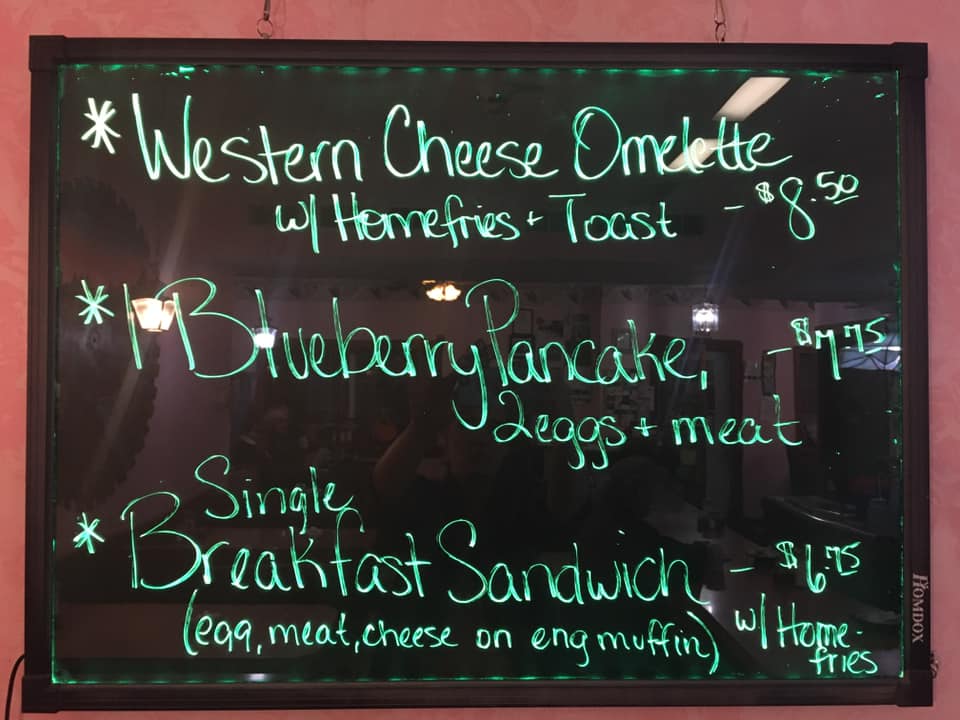 * Western Cheese Omelette
w/ Homefries + Toast - $8.50
* 1 Blueberry Pancake, - $7.75
2 eggs + meat
Single
* Breakfast Sandwich - $6.75
(egg, meat, cheese on eng muffin) w/ Home-
fries
HOMDOX